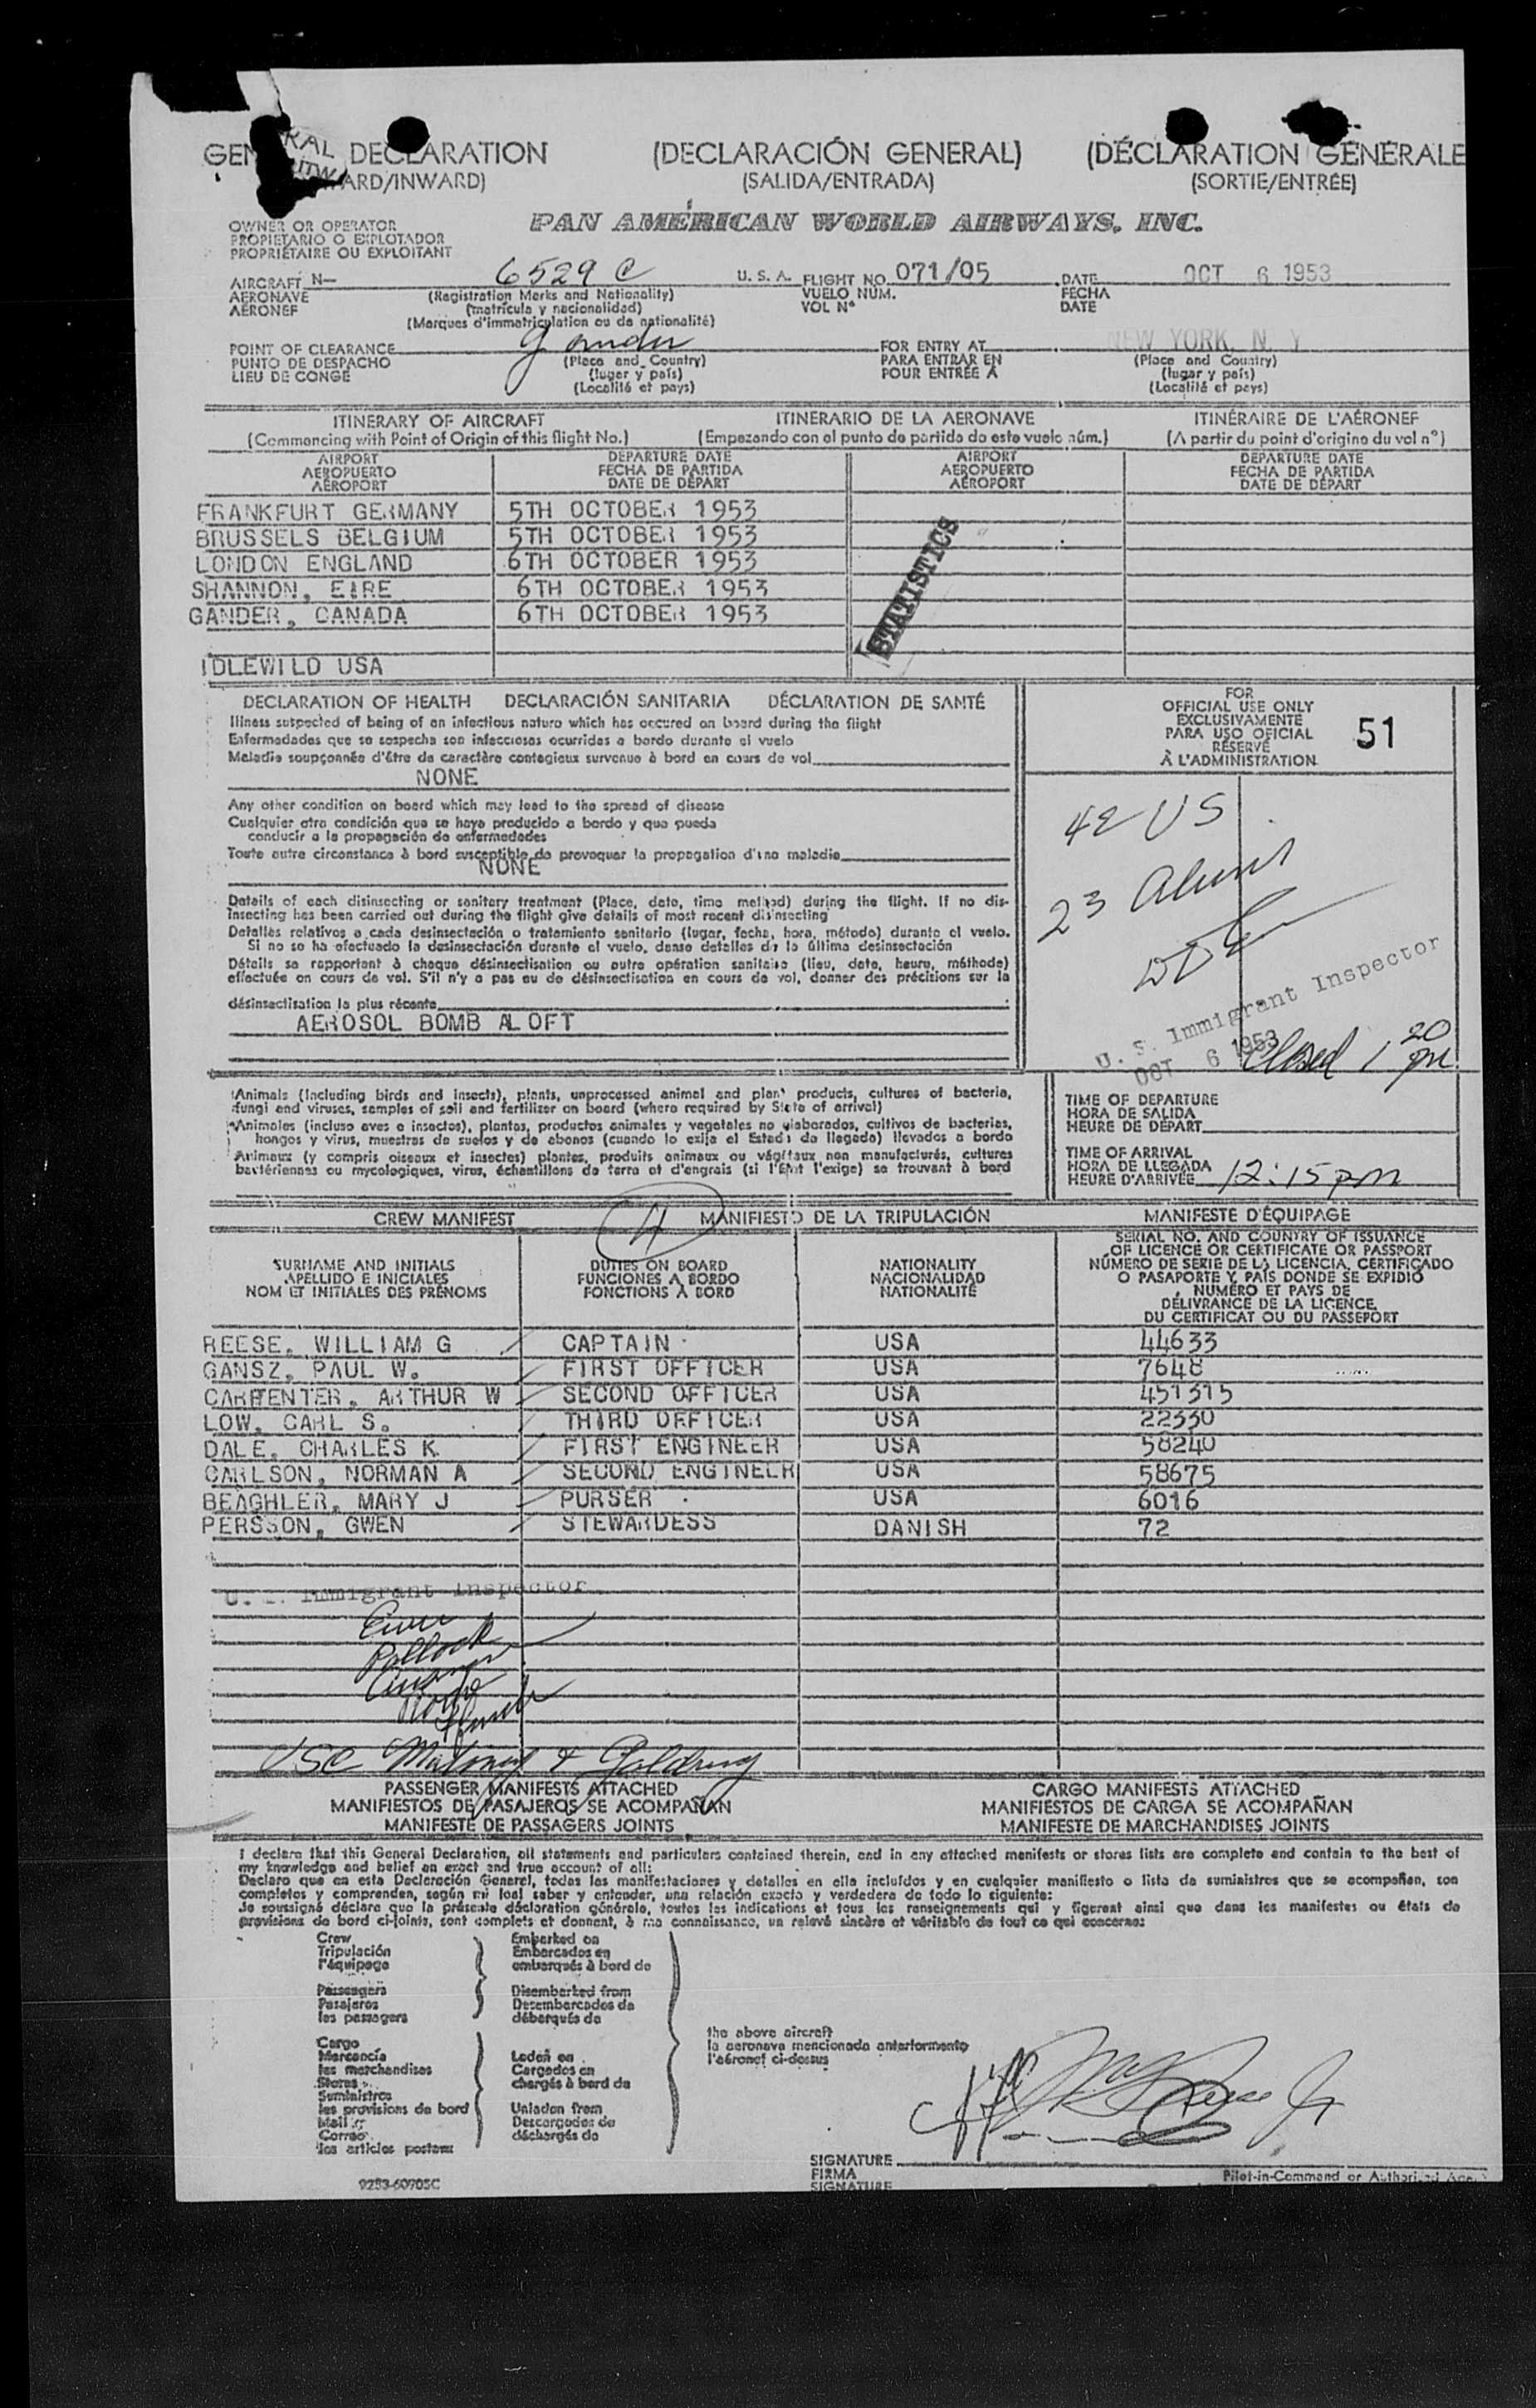 GENERAL DECLARATION (DECLARACIÓN GENERAL) (DÉCLARATION GÉNÉRALE
(OUTWARD/INWARD) (SALIDA/ENTRADA) (SORTIE/ENTRÉE)
OWNER OR OPERATOR
PROPIETARIO O EXPLOTADOR
PROPRIÉTAIRE OU EXPLOITANT
PAN AMERICAN WORLD AIRWAYS, INC.
AIRCRAFT N- 6529 C U. S. A. FLIGHT NO. 071/05 DATE OCT 6 1953
AERONAVE (Registration Marks and Nationality) VUELO NÚM. FECHA
AÉRONEF (matrícula y nacionalidad) VOL Nº DATE
(Marques d'immatriculation ou de nationalité)
POINT OF CLEARANCE Gander FOR ENTRY AT NEW YORK, N. Y
PUNTO DE DESPACHO (Place and Country) PARA ENTRAR EN (Place and Country)
LIEU DE CONGÉ (lugar y país) POUR ENTRÉE À (lugar y país)
(Localité et pays) (Localité et pays)
ITINERARY OF AIRCRAFT ITINERARIO DE LA AERONAVE ITINÉRAIRE DE L'AÉRONEF
(Commencing with Point of Origin of this flight No.) (Empezando con el punto de partida de este vuelo núm.) (A partir du point d'origine du vol nº)
AIRPORT DEPARTURE DATE AIRPORT DEPARTURE DATE
AEROPUERTO FECHA DE PARTIDA AEROPUERTO FECHA DE PARTIDA
AÉROPORT DATE DE DÉPART AÉROPORT DATE DE DÉPART
FRANKFURT GERMANY 5TH OCTOBER 1953
BRUSSELS BELGIUM 5TH OCTOBER 1953
LONDON ENGLAND 6TH OCTOBER 1953
SHANNON, EIRE 6TH OCTOBER 1953
GANDER, CANADA 6TH OCTOBER 1953
STATISTICS
IDLEWILD USA
DECLARATION OF HEALTH DECLARACIÓN SANITARIA DÉCLARATION DE SANTÉ
Illness suspected of being of an infectious nature which has occured on board during the flight
Enfermedades que se sospecha son infecciosas ocurridas a bordo durante el vuelo
Maladie soupçonnée d'être de caractère contagieux survenue à bord en cours de vol
NONE
Any other condition on board which may lead to the spread of disease
Cualquier otra condición que se haya producido a bordo y que pueda
conducir a la propagación de enfermedades
Toute autre circonstance à bord susceptible de provoquer la propagation d'une maladie
NONE
Details of each disinsecting or sanitary treatment (Place, date, time method) during the flight. If no dis-
insecting has been carried out during the flight give details of most recent disinsecting
Detalles relativos a cada desinsectación o tratamiento sanitario (lugar, fecha, hora, método) durante el vuelo.
Si no se ha efectuado la desinsectación durante el vuelo, dense detalles de la última desinsectación
Détails se rapportant à chaque désinsectisation ou autre opération sanitaire (lieu, date, heure, méthode)
effectuée en cours de vol. S'il n'y a pas eu de désinsectisation en cours de vol, donner des précisions sur la
désinsectisation la plus récente
AEROSOL BOMB ALOFT
FOR
OFFICIAL USE ONLY
EXCLUSIVAMENTE
PARA USO OFICIAL
RÉSERVÉ
À L'ADMINISTRATION
51
42 US
23 Aliens
U. S. Immigrant Inspector
OCT 6 1953
Closed 1 20 pm
Animals (Including birds and insects), plants, unprocessed animal and plant products, cultures of bacteria,
fungi and viruses, samples of soil and fertilizer on board (where required by State of arrival)
Animales (incluso aves e insectos), plantas, productos animales y vegetales no elaborados, cultivos de bacterias,
hongos y virus, muestras de suelos y de abonos (cuando lo exija el Estado de llegada) llevados a bordo
Animaux (y compris oiseaux et insectes) plantes, produits animaux ou végétaux non manufacturés, cultures
bactériennes ou mycologiques, virus, échantillons de terre et d'engrais (si l'État l'exige) se trouvant à bord
TIME OF DEPARTURE
HORA DE SALIDA
HEURE DE DÉPART
TIME OF ARRIVAL
HORA DE LLEGADA
HEURE D'ARRIVÉE 12:15 pm
CREW MANIFEST MANIFIESTO DE LA TRIPULACIÓN MANIFESTE D'ÉQUIPAGE
SURNAME AND INITIALS
APELLIDO E INICIALES
NOM ET INITIALES DES PRÉNOMS
DUTIES ON BOARD
FUNCIONES A BORDO
FONCTIONS À BORD
NATIONALITY
NACIONALIDAD
NATIONALITÉ
SERIAL NO. AND COUNTRY OF ISSUANCE
OF LICENCE OR CERTIFICATE OR PASSPORT
NÚMERO DE SERIE DE LA LICENCIA, CERTIFICADO
O PASAPORTE Y PAÍS DONDE SE EXPIDIÓ
NUMÉRO ET PAYS DE
DÉLIVRANCE DE LA LICENCE,
DU CERTIFICAT OU DU PASSEPORT
REESE, WILLIAM G CAPTAIN USA 44633
GANSZ, PAUL W. FIRST OFFICER USA 7648
CARPENTER, ARTHUR W SECOND OFFICER USA 451315
LOW, CARL S. THIRD OFFICER USA 22330
DALE, CHARLES K FIRST ENGINEER USA 58240
CARLSON, NORMAN A SECOND ENGINEER USA 58675
BEAGHLER, MARY J PURSER USA 6016
PERSSON, GWEN STEWARDESS DANISH 72
U. S. Immigrant Inspector
Pollock
USC & Goldring
PASSENGER MANIFESTS ATTACHED CARGO MANIFESTS ATTACHED
MANIFIESTOS DE PASAJEROS SE ACOMPAÑAN MANIFIESTOS DE CARGA SE ACOMPAÑAN
MANIFESTE DE PASSAGERS JOINTS MANIFESTE DE MARCHANDISES JOINTS
I declare that this General Declaration, all statements and particulars contained therein, and in any attached manifests or stores lists are complete and contain to the best of
my knowledge and belief an exact and true account of all:
Declaro que en esta Declaración General, todas las manifestaciones y detalles en ella incluídos y en cualquier manifiesto o lista de suministros que se acompañan, son
completos y comprenden, según mi leal saber y entender, una relación exacta y verdadera de todo lo siguiente:
Je soussigné déclare que la présente déclaration générale, toutes les indications et tous les renseignements qui y figurent ainsi que dans les manifestes ou états de
provisions de bord ci-joints, sont complets et donnent, à ma connaissance, un relevé sincère et véritable de tout ce qui concerne:
Crew
Tripulación
l'équipage
Embarked on
Embarcados en
embarqués à bord de
Passengers
Pasajeros
les passagers
Disembarked from
Desembarcados de
débarqués de
Cargo
Mercancía
les marchandises
Stores
Suministros
les provisions de bord
Mail
Correo
les articles postaux
Laden on
Cargados en
chargés à bord de
Unladen from
Descargados de
déchargés de
the above aircraft
la aeronave mencionada anteriormente
l'aéronef ci-dessus
SIGNATURE
FIRMA
SIGNATURE
Pilot-in-Command or Authorized Agent
9253-60705C